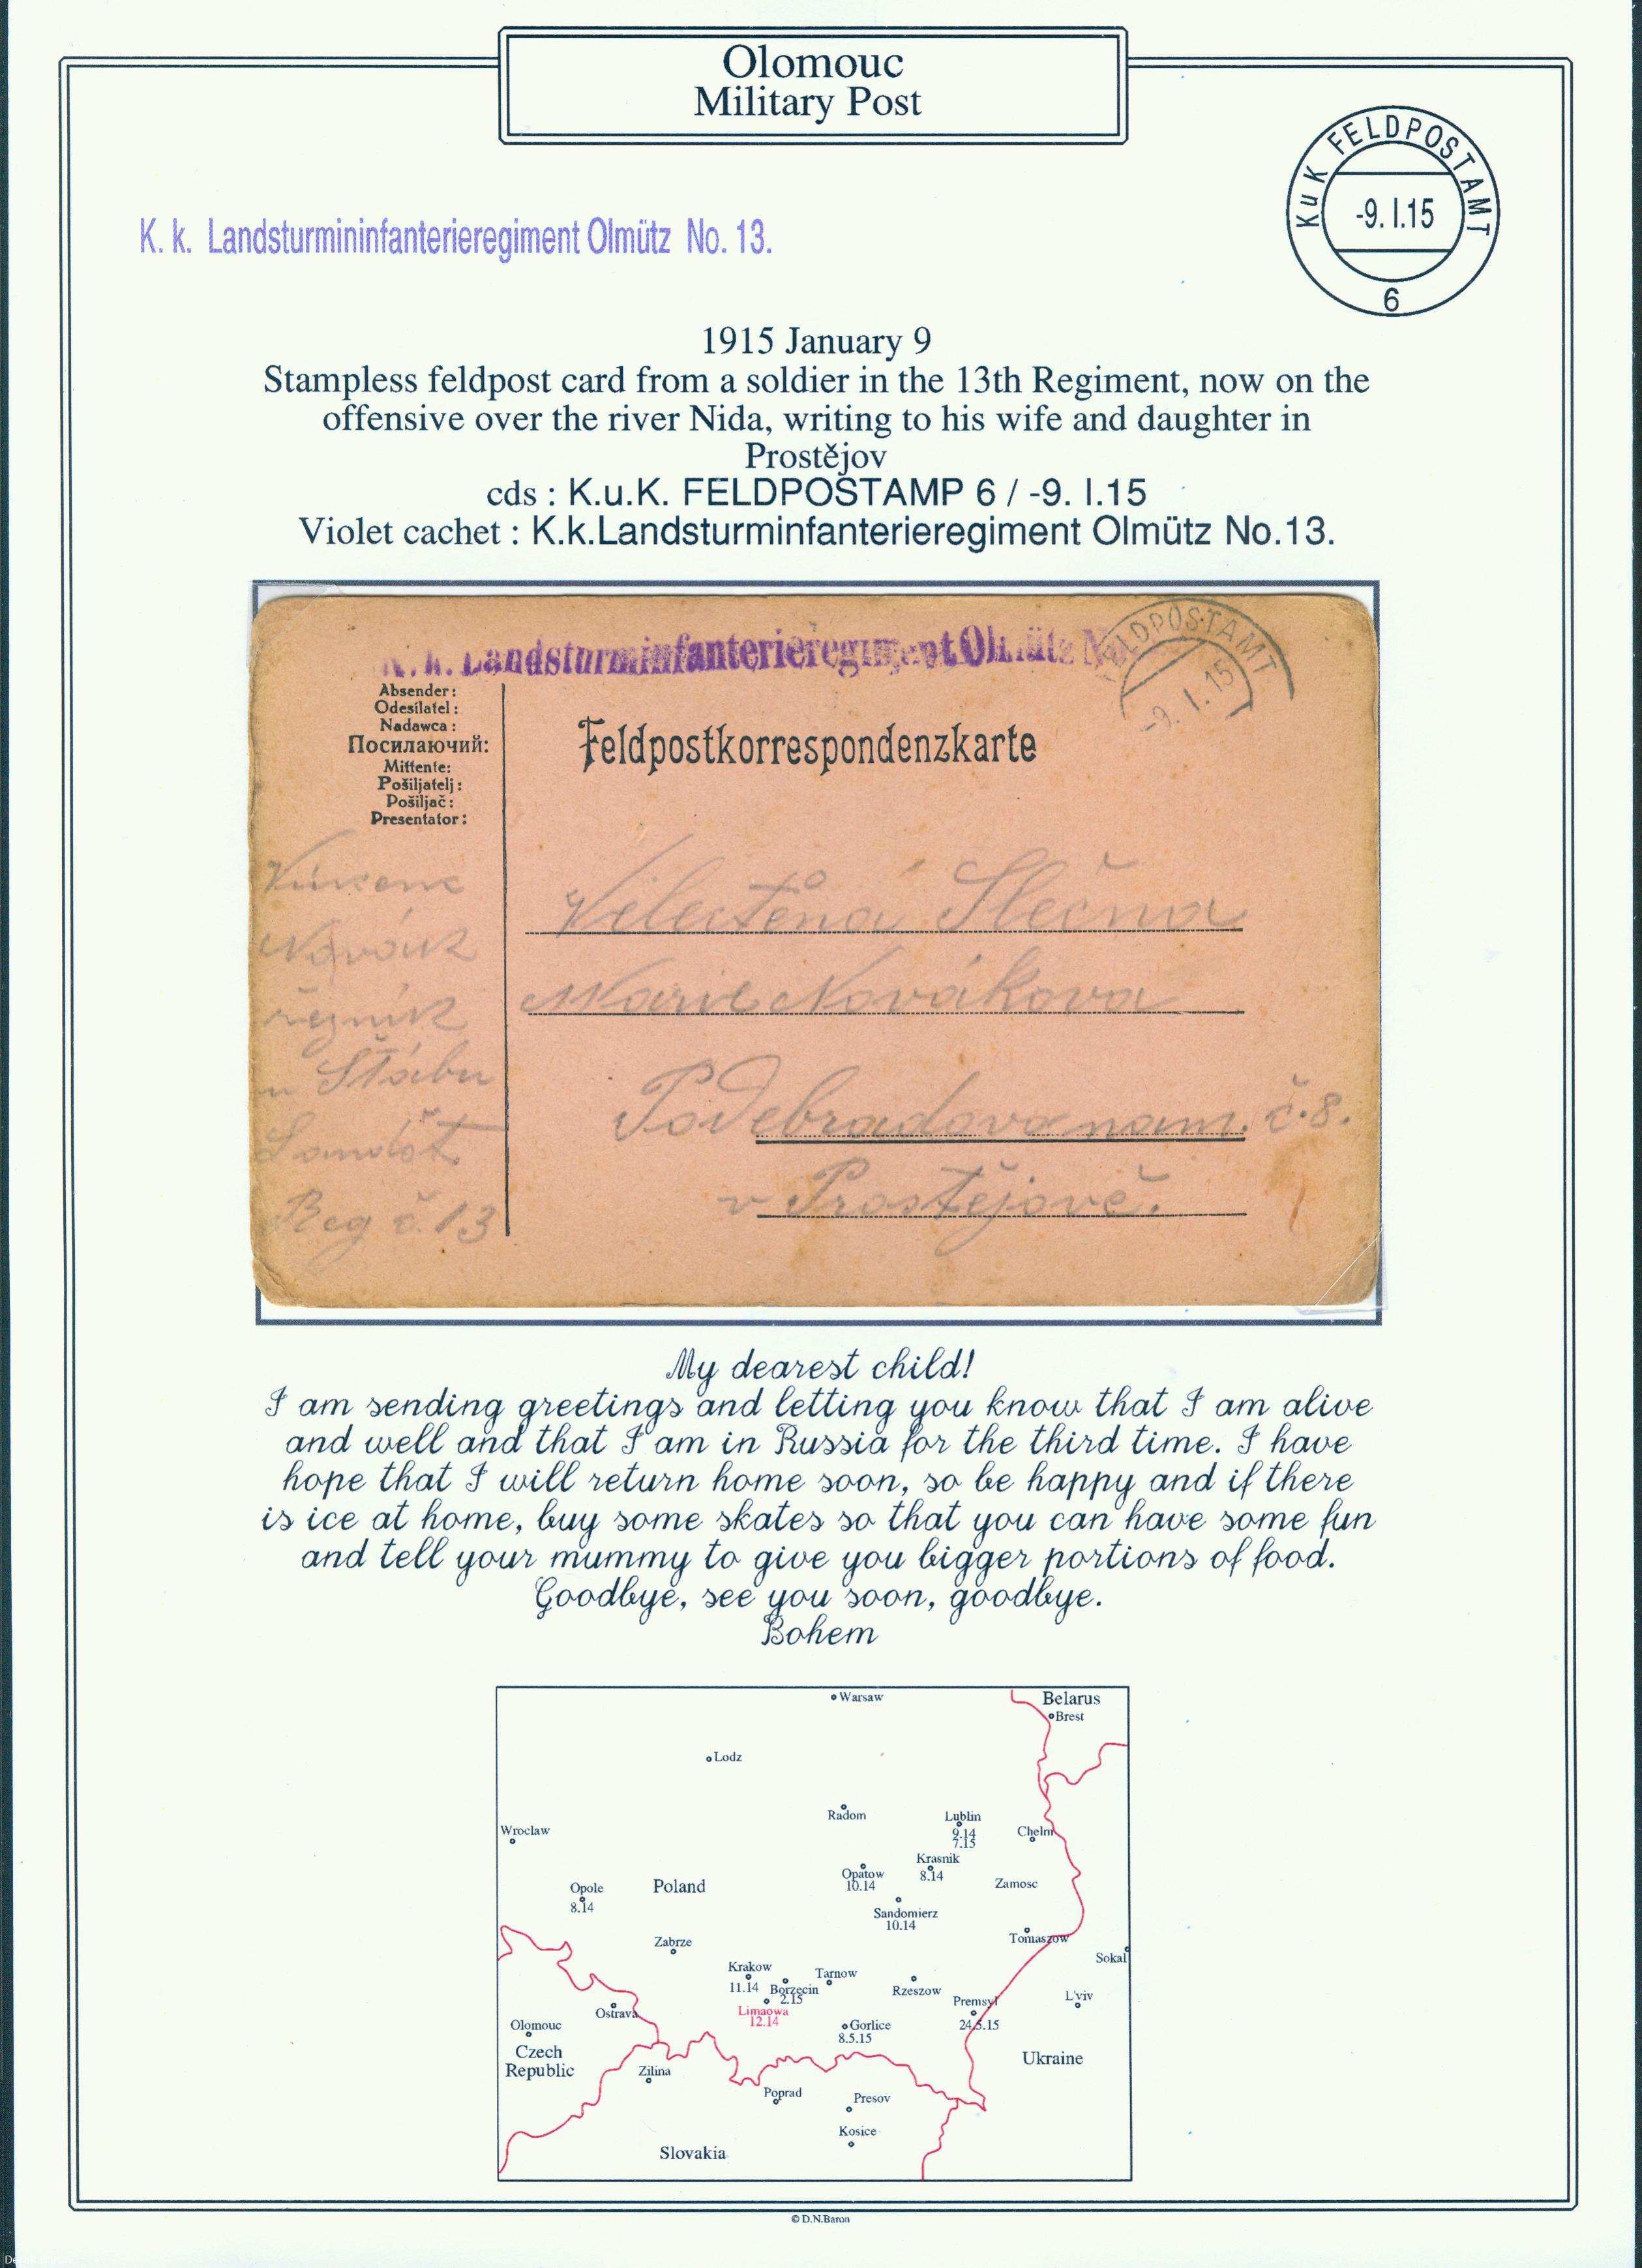 Olomouc
Military Post
KuK FELDPOSTAMT
-9. I.15
6
K. k. Landsturmininfanterieregiment Olmütz No. 13.
1915 January 9
Stampless feldpost card from a soldier in the 13th Regiment, now on the
offensive over the river Nida, writing to his wife and daughter in
Prostějov
cds : K.u.K. FELDPOSTAMP 6 / -9. I.15
Violet cachet : K.k.Landsturminfanterieregiment Olmütz No.13.
K. k. Landsturminfanterieregiment Olmütz
LDPOSTAMT
-9. I. 15
Absender:
Odesílatel:
Nadawca:
Посилаючий:
Mittente:
Pošiljatelj:
Pošiljač:
Presentator:
Feldpostkorrespondenzkarte
Novák
řezník
u Štábu
Reg č. 13
Slečna
Marie Nováková
Poděbradovo nám. č. 8.
v Prostějově.
My dearest child!
I am sending greetings and letting you know that I am alive
and well and that I am in Russia for the third time. I have
hope that I will return home soon, so be happy and if there
is ice at home, buy some skates so that you can have some fun
and tell your mummy to give you bigger portions of food.
Goodbye, see you soon, goodbye.
Bohem
Warsaw
Belarus
Brest
Lodz
Radom
Lublin
9.14
7.15
Chelm
Wroclaw
Krasnik
8.14
Opatow
10.14
Zamosc
Opole
8.14
Poland
Sandomierz
10.14
Tomaszow
Zabrze
Sokal
Krakow
11.14
Borzecin
2.15
Tarnow
Rzeszow
Limaowa
12.14
Premsyl
24.5.15
L'viv
Ostrava
Olomouc
Gorlice
8.5.15
Czech
Republic
Ukraine
Zilina
Poprad
Presov
Kosice
Slovakia
© D.N.Baron